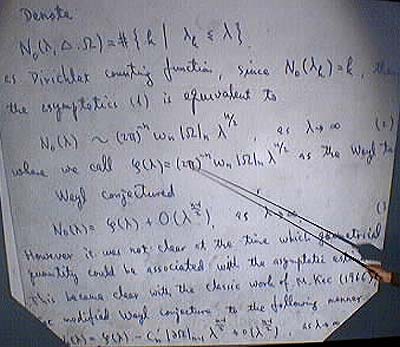 Denote
N₀(λ, Δ, Ω) = #{ k | λₖ ≤ λ }
as Dirichlet counting function, since N₀(λₖ) = k,
the asymptotics (1) is equivalent to
N₀(λ) ~ (2π)⁻ⁿ ωₙ |Ω|ₙ λ^{n/2}, as λ→∞ (2)
where we call φ(λ) = (2π)⁻ⁿ ωₙ |Ω|ₙ λ^{n/2} as the Weyl
Weyl conjectured
N₀(λ) = φ(λ) + O(λ^{(n-1)/2}), as λ→∞,
However it was not clear at the time which geometrical
quantity could be associated with the asymptotic
This became clear with the classic work of M. Kac (1966)
modified Weyl conjecture to the following manner
(λ) = φ(λ) − Cₙ' |∂Ω| λ^{(n-1)/2} + o(λ^{(n-1)/2}), as λ→∞